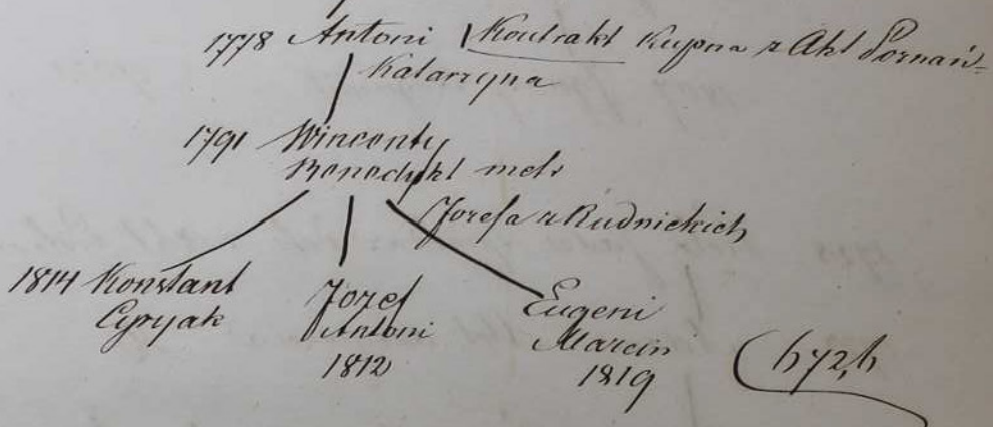 1778 Antoni Kontrakt Kupna z Akt Poznań=
Katarzyna
1791 Wincenty
Benedykt metr
Jozefa z Rudnickich
1814 Konstant Jozef Eugeni
Cyryak Antoni Marcin
1812 1819